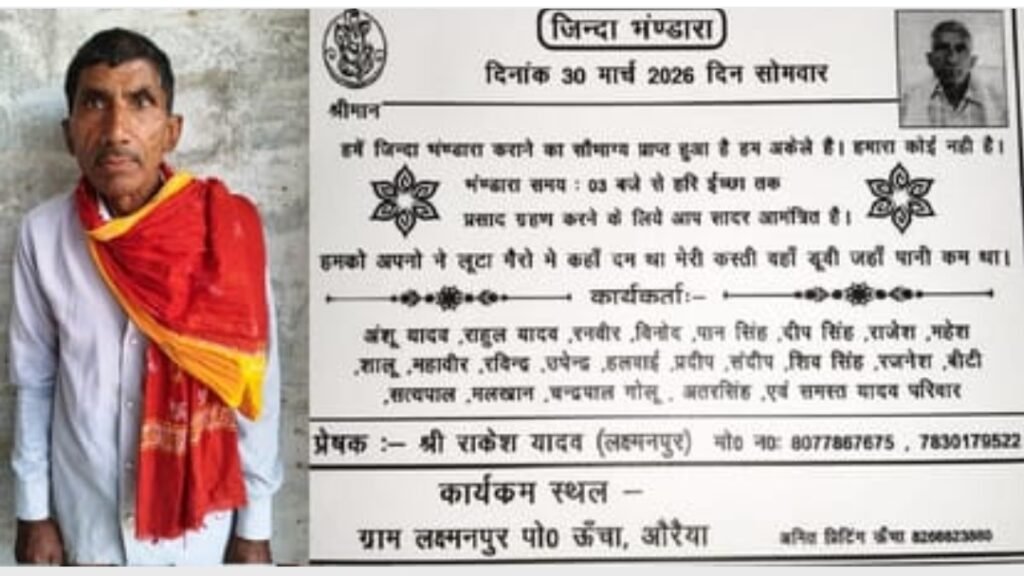 जिन्दा भंण्डारा
दिनांक 30 मार्च 2026 दिन सोमवार
श्रीमान
हमें जिन्दा भंण्डारा कराने का सौभाग्य प्राप्त हुआ है हम अकेले है। हमारा कोई नही है।
भंण्डारा समय : 03 बजे से हरि ईच्छा तक
प्रसाद ग्रहण करने के लिये आप सादर आमंत्रित है।
हमको अपनो ने लूटा गैरो मे कहाँ दम था मेरी कस्ती वहाँ डूवी जहाँ पानी कम था।
कार्यकर्ताः-
अंशू यादव ,राहुल यादव ,रनवीर ,विनोद ,पान सिंह ,दीप सिंह ,राजेश ,महेश
,शालू ,महावीर ,रविन्द्र ,उपेन्द्र ,हलवाई ,प्रदीप ,संदीप ,शिव सिंह ,रजनेश ,बीटी
,सत्यपाल ,मलखान ,चन्द्रपाल गोलू , अतरसिंह ,एवं समस्त यादव परिवार
प्रेषक :– श्री राकेश यादव (लक्ष्मनपुर) मो0 नः 8077867675 , 7830179522
कार्यकम स्थल –
ग्राम लक्ष्मनपुर पो0 ऊँचा, औरैया
प्रिटिंग ऊँचा